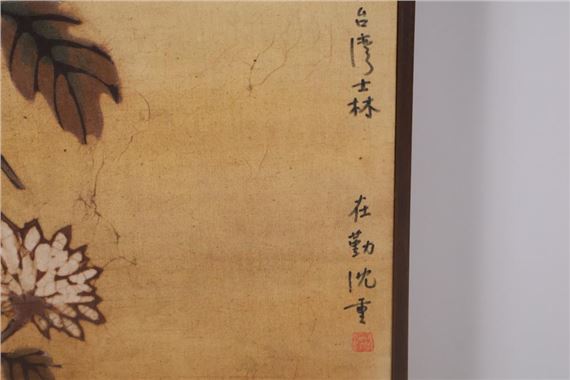 台湾士林
在勤沈重